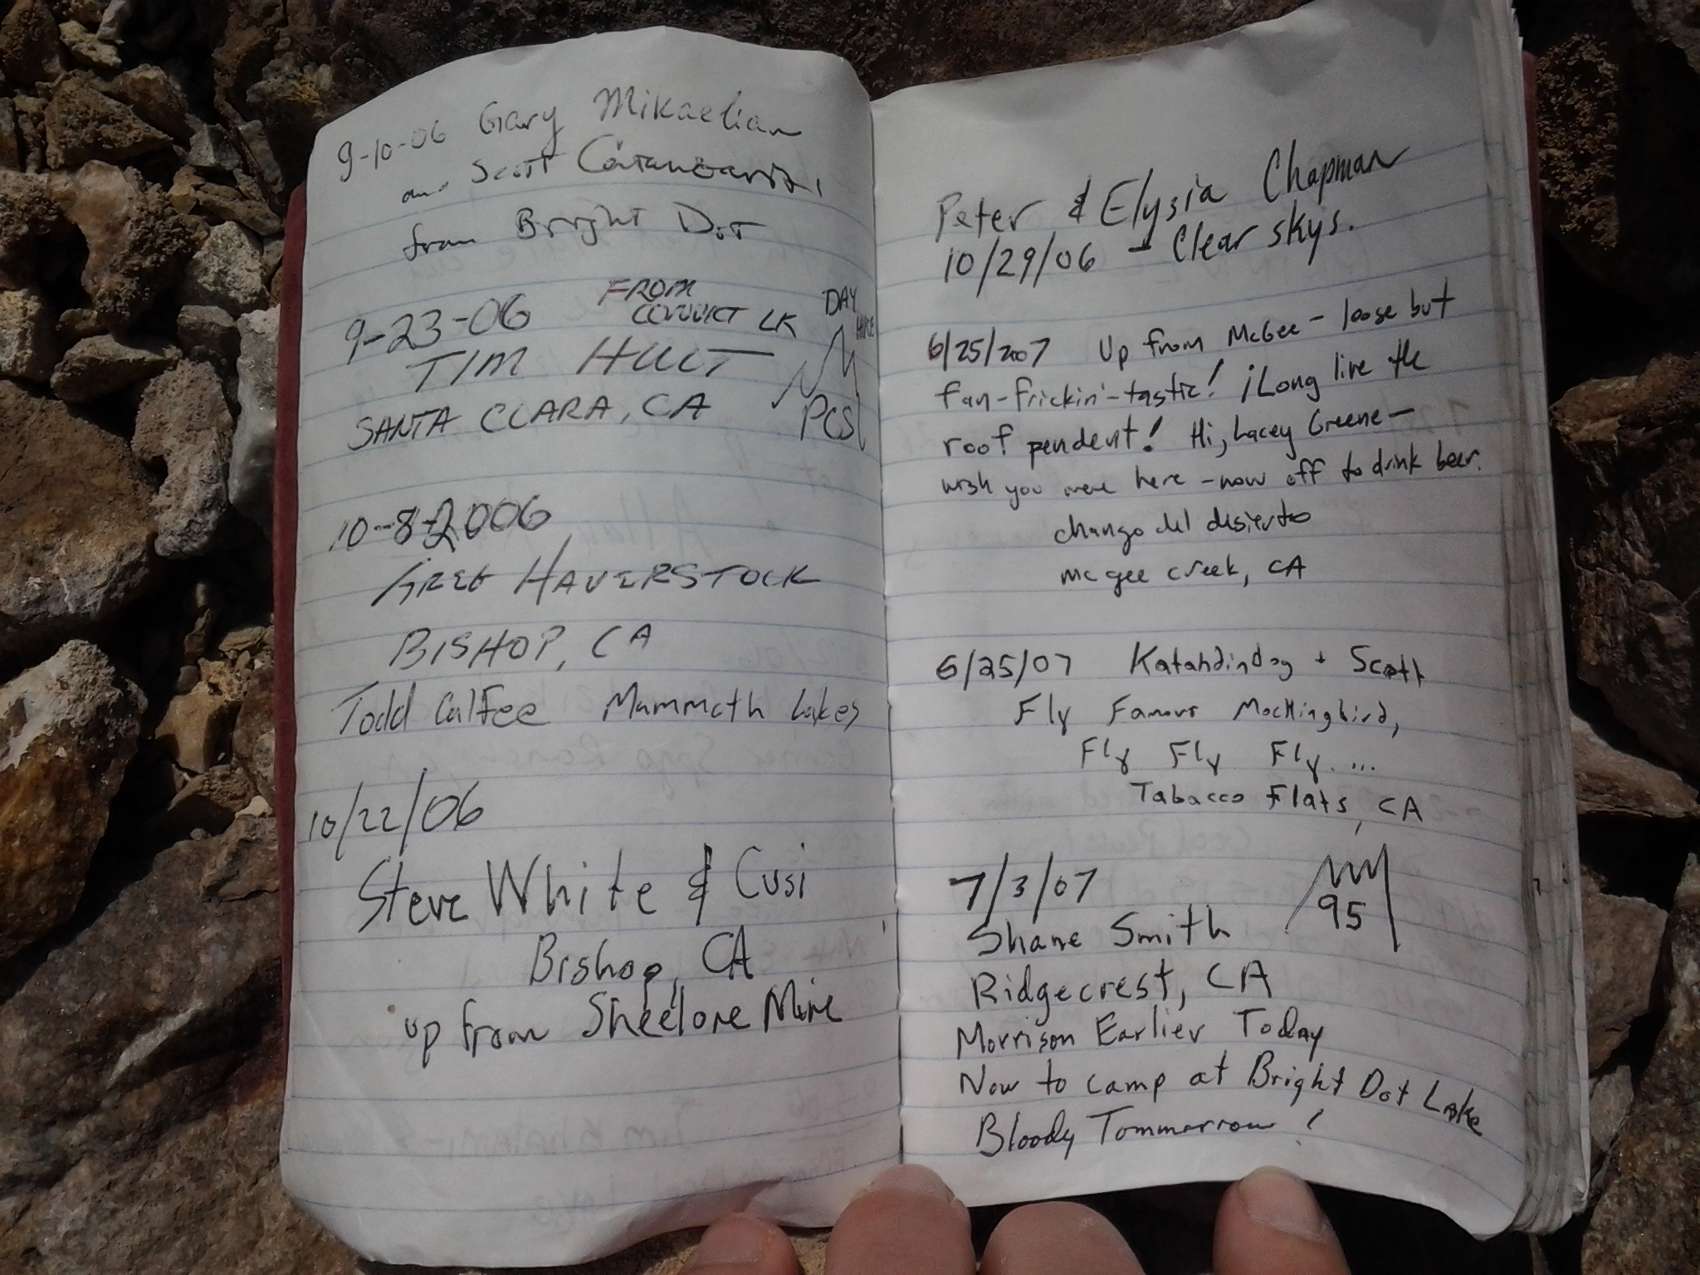 9-10-06 Gary Mikaelian
and Scott
from Bright Dot
9-23-06 FROM CONVICT LK DAY HIKE
TIM HULT
SANTA CLARA, CA PCS
10-8-2006
GREG HAVERSTOCK
BISHOP, CA
Todd Calfee Mammoth Lakes
10/22/06
Steve White & Cusi
Bishop, CA
up from Sheelore Mine
Peter & Elysia Chapman
10/29/06 - Clear skys.
6/25/2007 Up from McGee - loose but
fan-frickin'-tastic! ¡Long live the
roof pendent! Hi, Lacey Greene -
wish you were here - now off to drink beer.
chango del desierto
mcgee creek, CA
6/25/07 Katahdindog + Scott
Fly Famous Mockingbird,
Fly Fly Fly....
Tabacco Flats, CA
7/3/07
95
Shane Smith
Ridgecrest, CA
Morrison Earlier Today
Now to camp at Bright Dot Lake
Bloody Tommorrow!